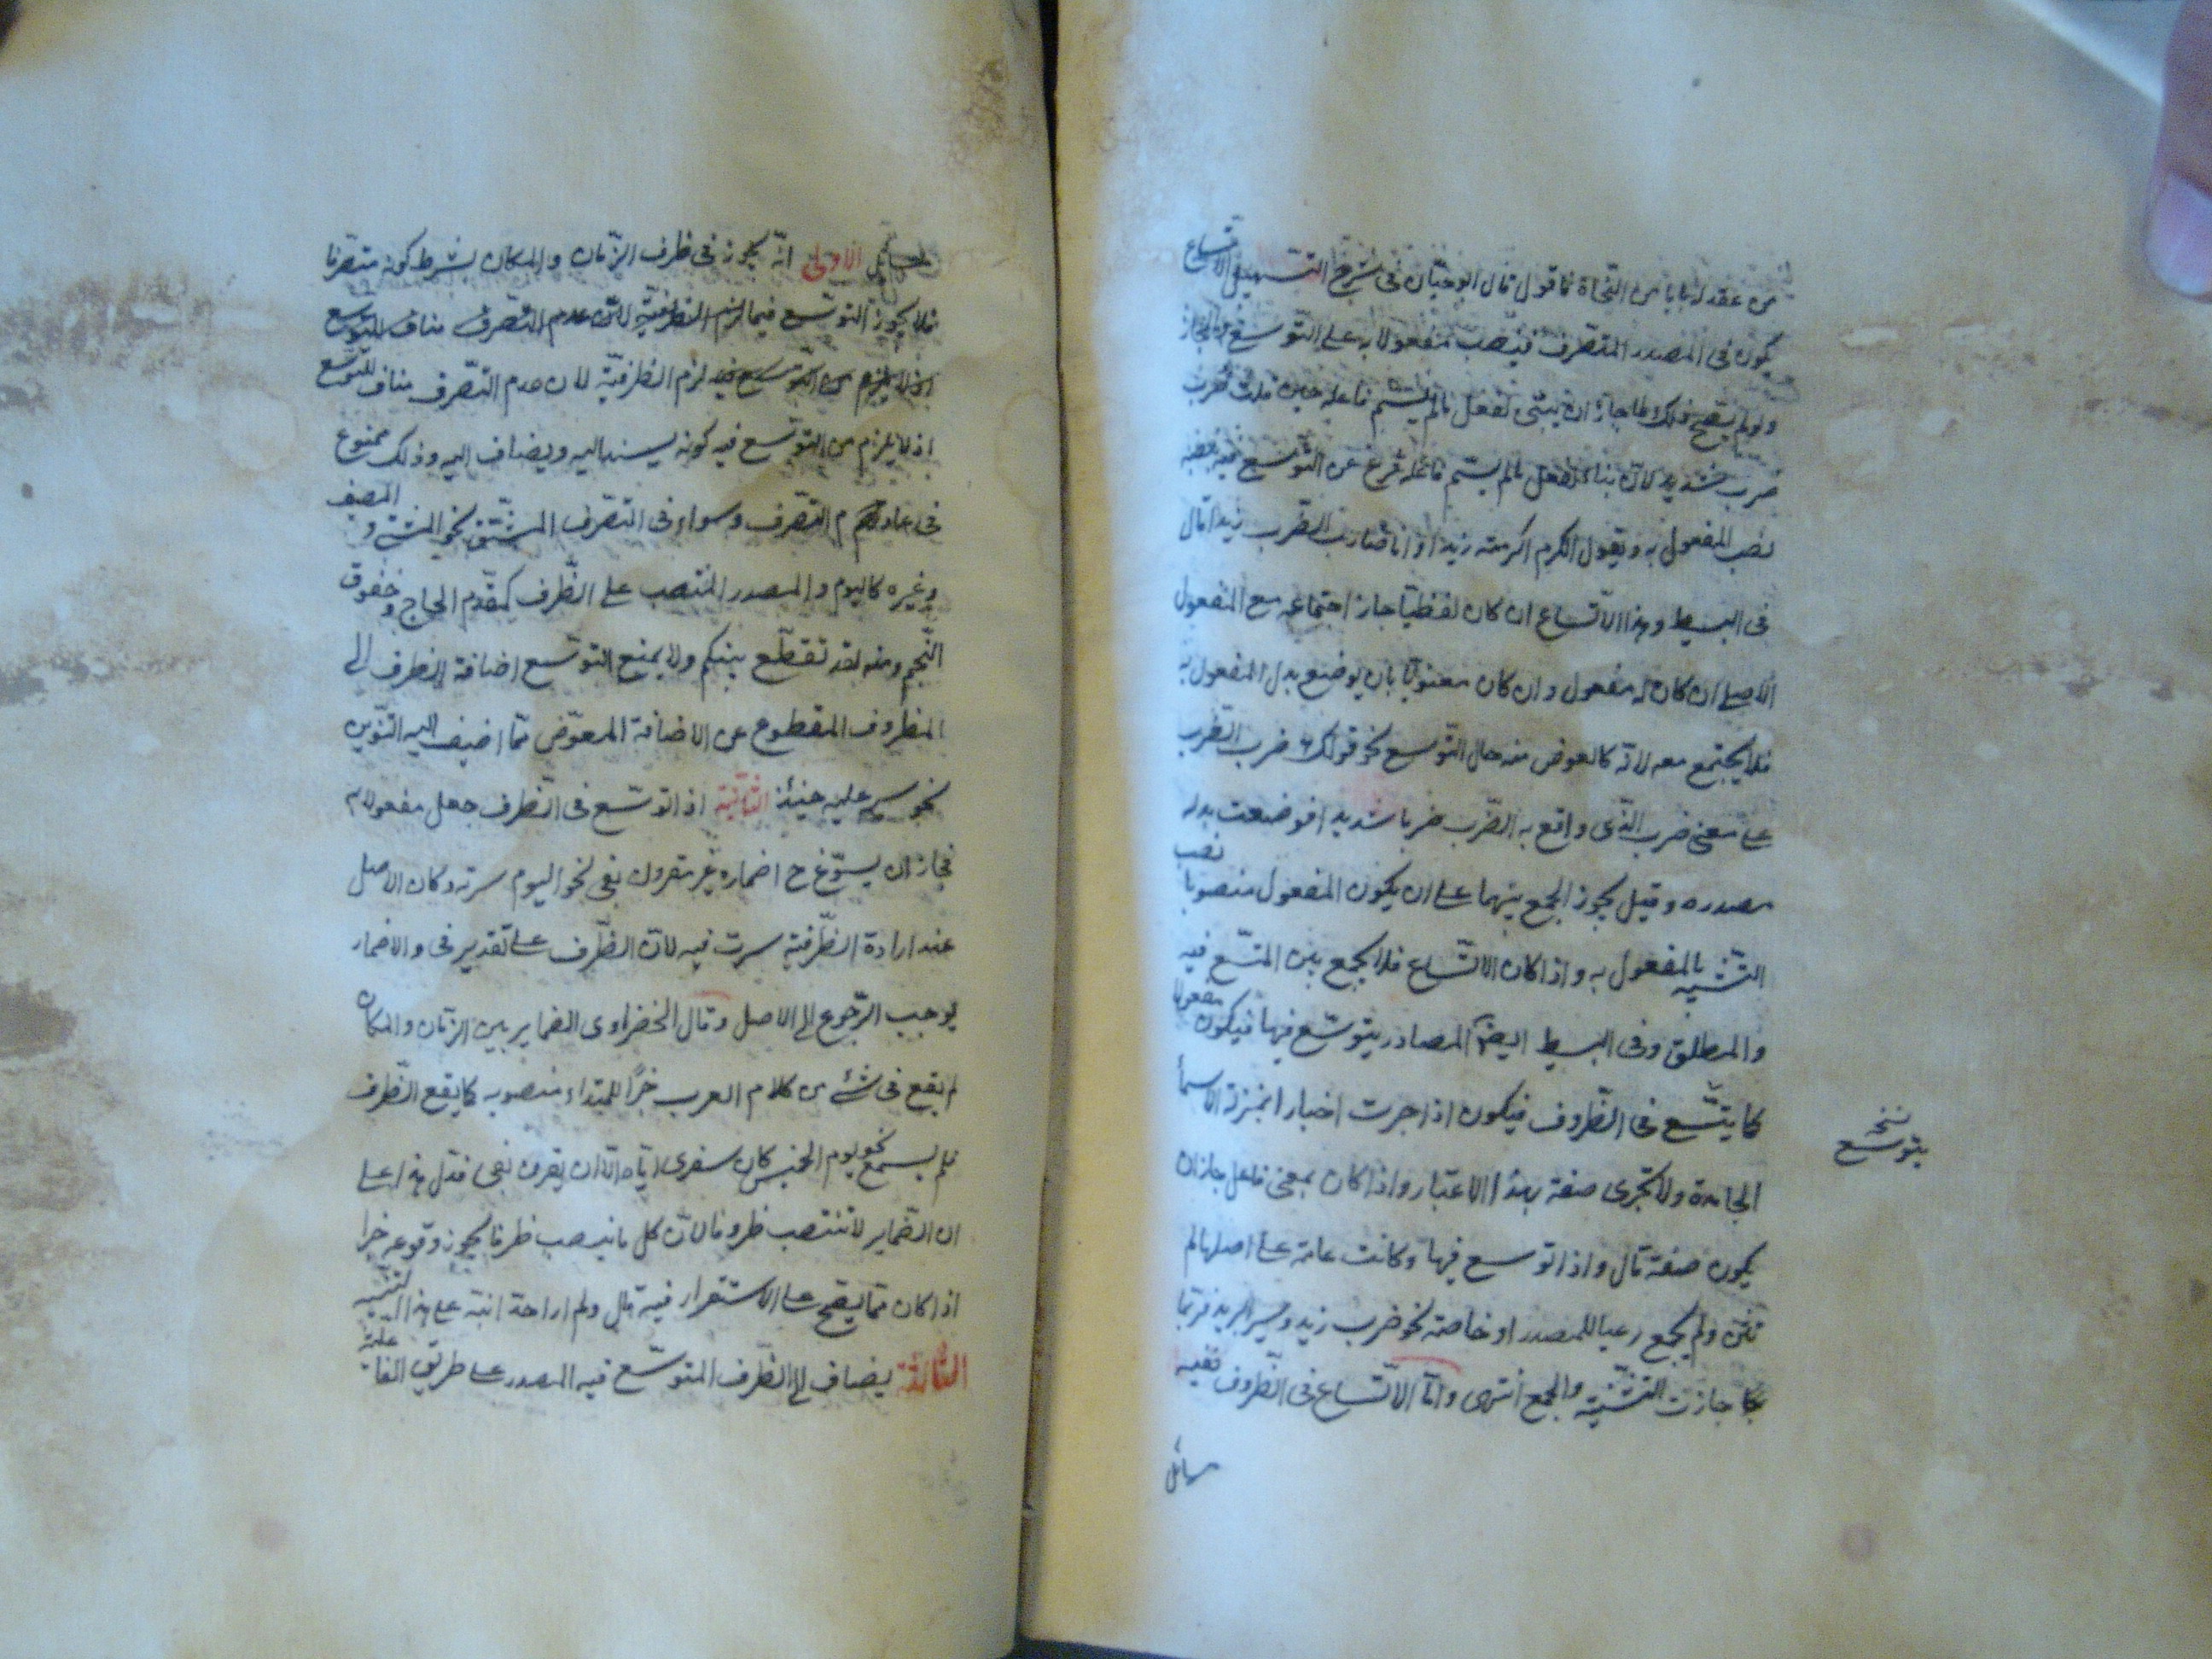 من عقد له بابا من النحاة فاقول قال ابو حيان فى شرح التسهيل الاتساع
يكون فى المصدر المتصرف فينصب مفعولا به على التوسع والمجاز
ولو لم يصح ذلك لما جاز ان يبنى لفعل ما لم يسم فاعله حين قلت ضرب
ضرب شديد لان بناءه لفعل ما لم يسم فاعله فرع عن التوسع فيه بنصبه
نصب المفعول به وتقول الكرم اكرمته زيدا وانا ضارب الضرب زيدا قال
فى البسيط وهذا الاتساع ان كان لفظيا جاز اجتماعه مع المفعول
الاصلى ان كان له مفعول وان كان معنويا بان يوضع بدل المفعول به
فلا يجتمع معه لانه كالعوض منه حال التوسع نحو قولك ضرب الضرب
على معنى ضرب الذى وقع به الضرب ضربا شديدا فوضعت بدله
مصدره وقيل يجوز الجمع بينهما على ان يكون المفعول منصوبا نصب
التشبيه بالمفعول به واذا كان الاتساع فلا يجمع بين المتسع فيه
والمطلق وفى البسيط ايضا المصادر يتوسع فيها فيكون مفعولا
كما يتسع فى الظروف فيكون اذا جرت اخبارا بمنزلة الاسما
نخ
يتوسع
الجامدة ولا تجرى صفة بهذا الاعتبار واذا كان بمعنى فاعل جاز ان
يكون صفة قال واذا توسع فيها وكانت عامة على اصلها لم
تثن ولم تجمع رعيا للمصدر او خاصة نحو ضرب زيد وسير البريد فربما
جازت التثنية والجمع انتهى واما الاتساع فى الظروف ففيه
مسائل
مسائل الاولى انه يجوز فى ظرف الزمان والمكان بشرط كونه متصرفا
فلا يجوز التوسع فيما لزم الظرفية لان عدم التصرف مناف للتوسع
لزم الظرفية لان عدم التصرف مناف للتوسع
اذ يلزم من التوسع فيه كونه يسند اليه ويضاف اليه وذلك ممنوع
فى عادم التصرف وسواء فى التصرف المشتق نحو المشتى و المصيف
وغيره كاليوم والمصدر المنتصب على الظرف كمقدم الحاج وخفوق
النجم ومنه لقد تقطع بينكم ولا يمنع التوسع اضافة الظرف الى
المظروف المقطوع عن الاضافة المعوض مما اضيف اليه التنوين
نحو سير عليه حينئذ الثانية اذا توسع فى الظرف جعل مفعولا به
فجاز ان يسوغ ح اضماره غير مقرون بفى نحو اليوم سرته وكان الاصل
عند ارادة الظرفية سرت فيه لان الظرف على تقدير فى والاضمار
يوجب الرجوع الى الاصل وقال الخضراوى الضماير بين الزمان والمكان
لم يقع فى شئ من كلام العرب خبرا للمبتداء منصوبه كما يقع الظرف
فلم يسمع نحو يوم الخميس كان سفرى اياه الا ان يقرن بفى فدل هذا على
ان الضماير لا تنتصب ظروفا لان كل ما ينصب ظرفا يجوز وقوعه خبرا
اذا كان مما يصح على الاستقرار فيه قال ولم ار احدا نبه على هذا التنبيه
الثالثة يضاف الى الظرف المتوسع فيه المصدر على طريق الفاعلية